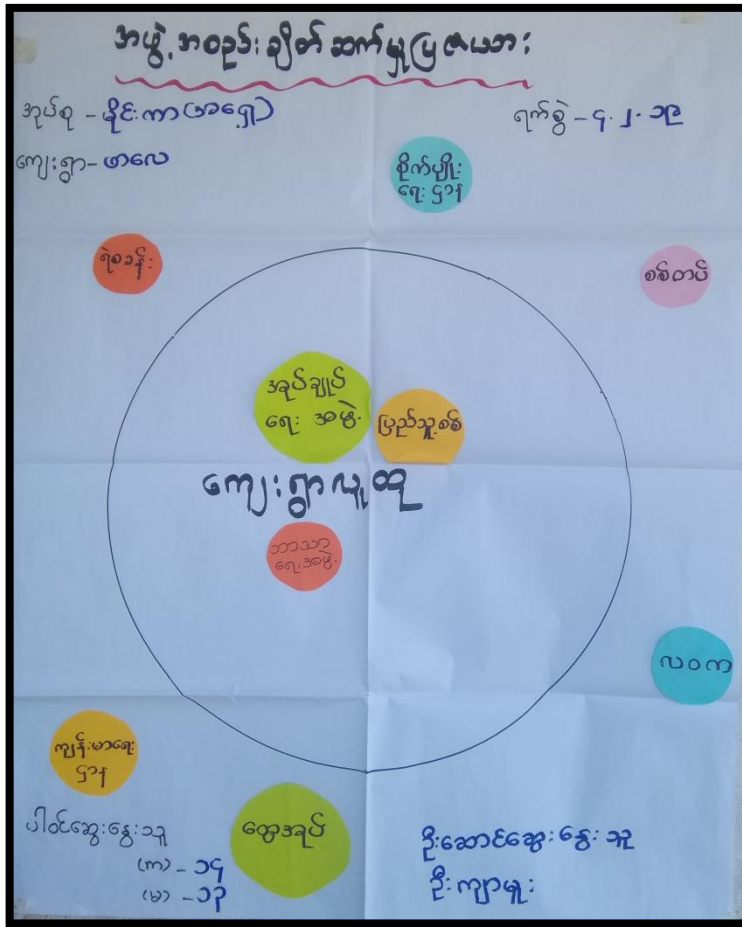 အဖွဲ့အစည်းချိတ်ဆက်မှုပြဇယား
အုပ်စု - မိုင်းကာ(အရှေ့)
ရက်စွဲ - ၄.၂.၁၉
ကျေးရွာ - ဖာလေ
စိုက်ပျိုး
ရေးဌာန
ရဲစခန်း
စစ်တပ်
အုပ်ချုပ်
ရေး အဖွဲ့
ပြည်သူ့စစ်
ကျေးရွာလူထု
ဘာသာ
ရေးအဖွဲ့
လဝက
ကျန်းမာရေး
ဌာန
ထွေအုပ်
ပါဝင်ဆွေးနွေးသူ
(က) - ၁၄
(မ) - ၁၃
ဦးဆောင်ဆွေးနွေးသူ
ဦးကျာမူး